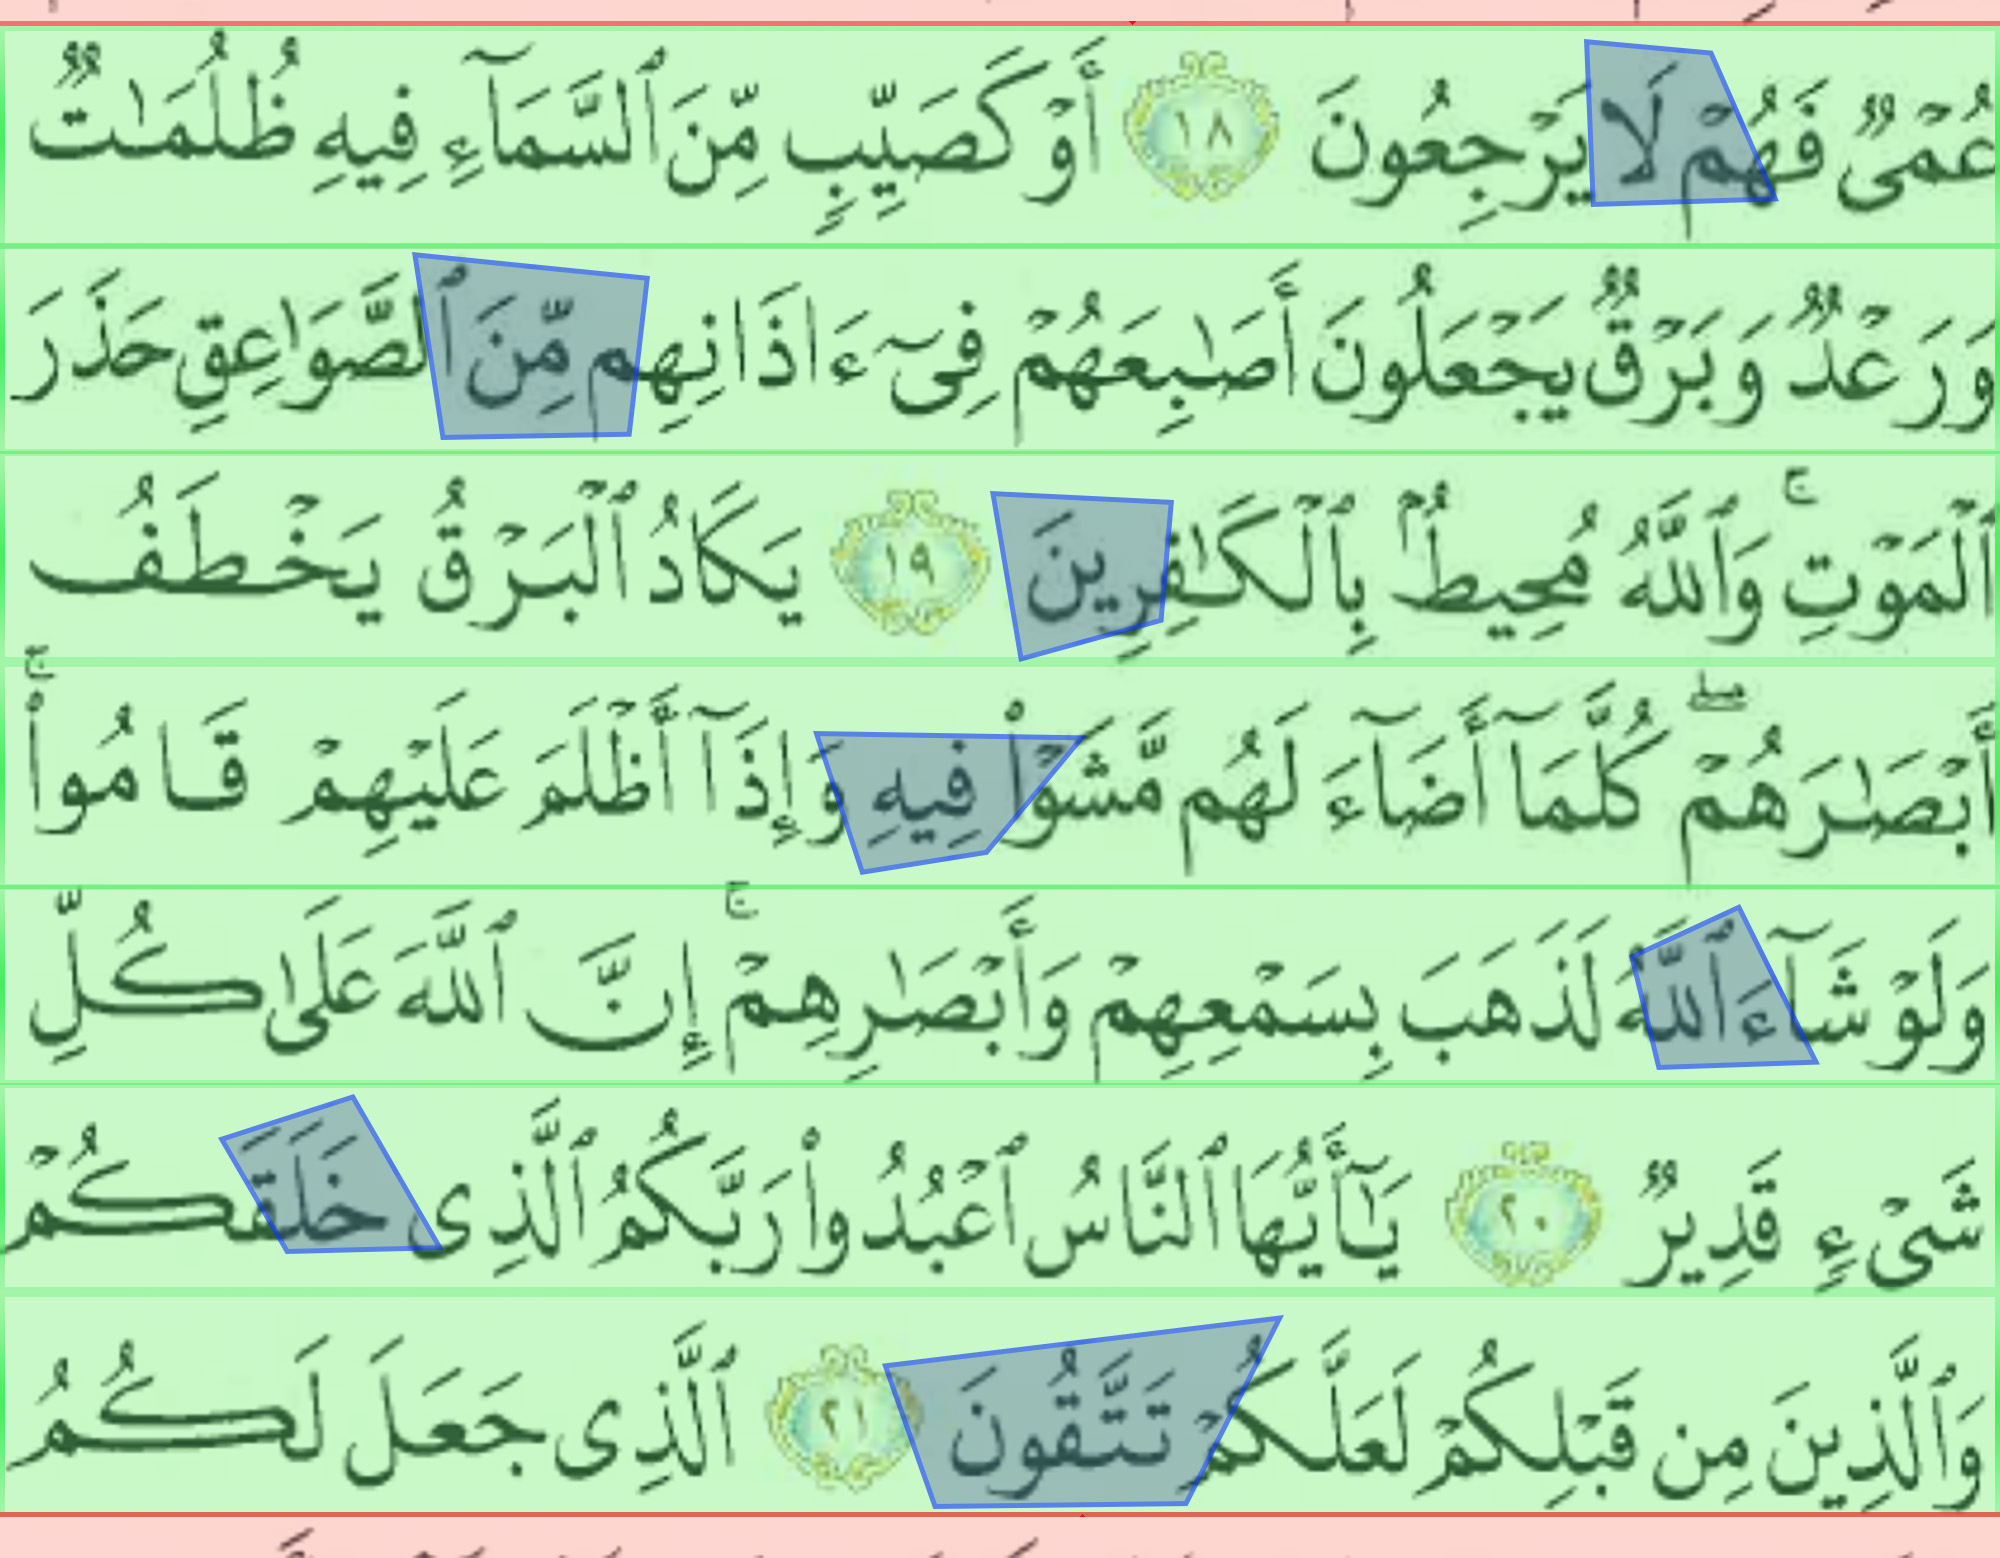 عُمْىٌ فَهُمْ لَا يَرْجِعُونَ ١٨ أَوْ كَصَيِّبٍ مِّنَ ٱلسَّمَآءِ فِيهِ ظُلُمَـٰتٌ
وَرَعْدٌ وَبَرْقٌ يَجْعَلُونَ أَصَـٰبِعَهُمْ فِىٓ ءَاذَانِهِم مِّنَ ٱلصَّوَٰعِقِ حَذَرَ
ٱلْمَوْتِ ۚ وَٱللَّهُ مُحِيطٌۢ بِٱلْكَـٰفِرِينَ ١٩ يَكَادُ ٱلْبَرْقُ يَخْطَفُ
أَبْصَـٰرَهُمْ ۖ كُلَّمَآ أَضَآءَ لَهُم مَّشَوْا۟ فِيهِ وَإِذَآ أَظْلَمَ عَلَيْهِمْ قَامُوا۟ ۚ
وَلَوْ شَآءَ ٱللَّهُ لَذَهَبَ بِسَمْعِهِمْ وَأَبْصَـٰرِهِمْ ۚ إِنَّ ٱللَّهَ عَلَىٰ كُلِّ
شَىْءٍ قَدِيرٌ ٢٠ يَـٰٓأَيُّهَا ٱلنَّاسُ ٱعْبُدُوا۟ رَبَّكُمُ ٱلَّذِى خَلَقَكُمْ
وَٱلَّذِينَ مِن قَبْلِكُمْ لَعَلَّكُمْ تَتَّقُونَ ٢١ ٱلَّذِى جَعَلَ لَكُمُ